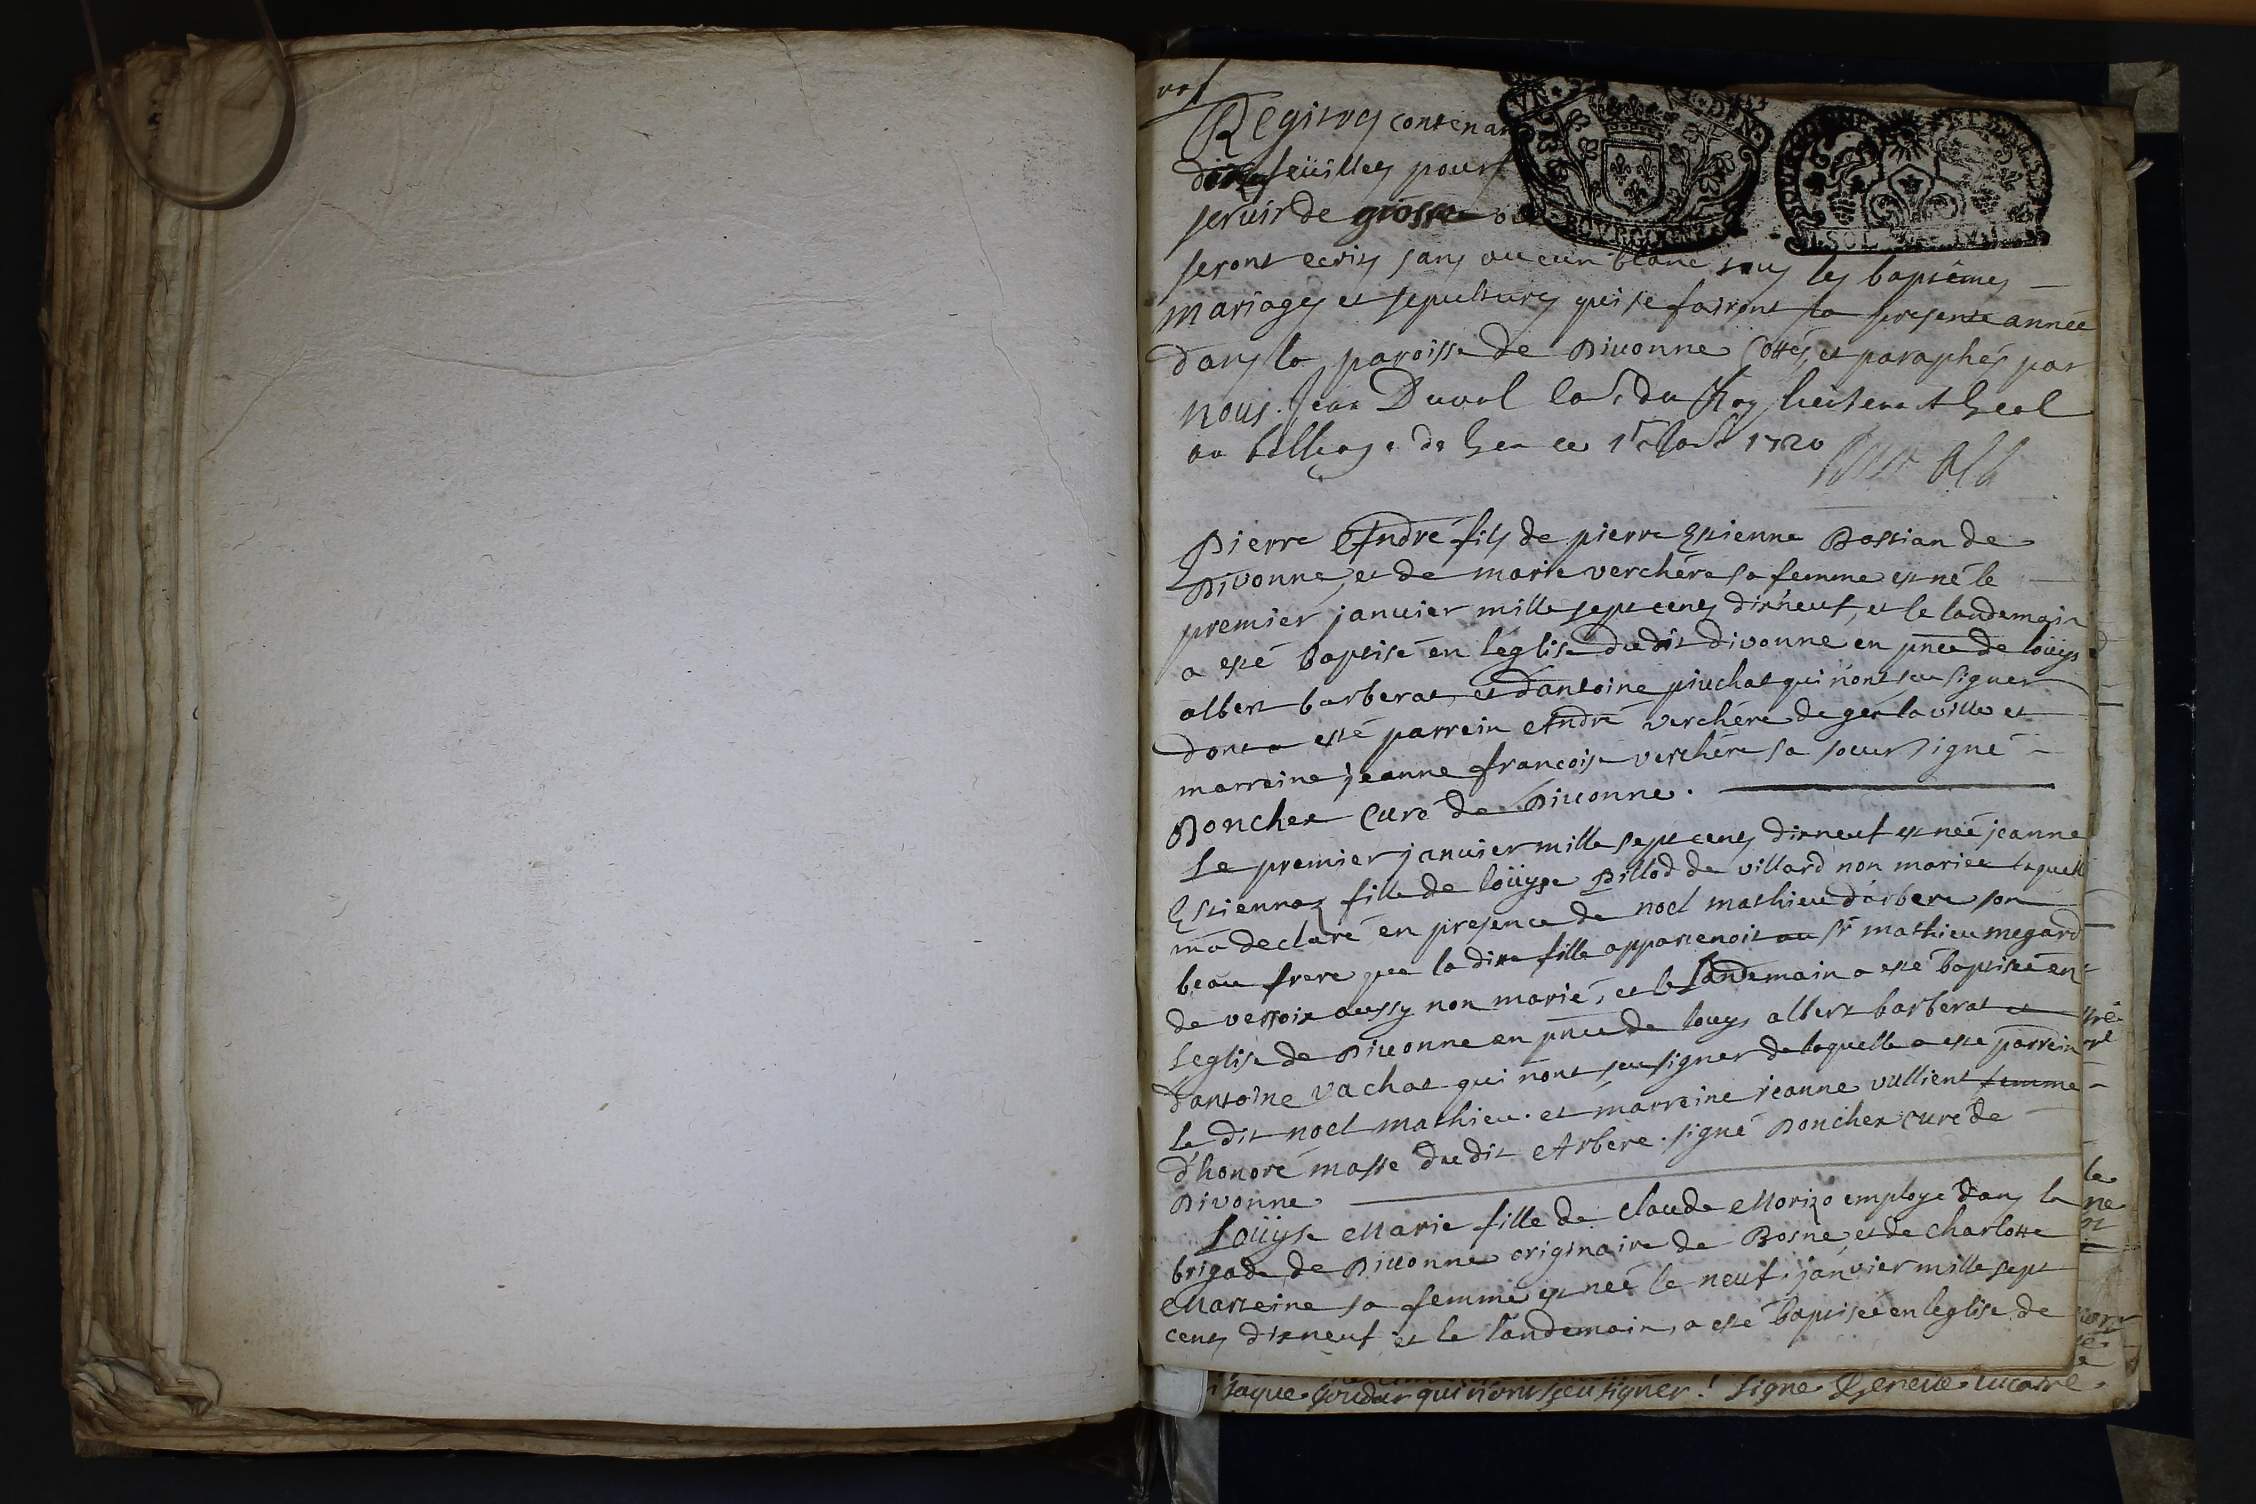 Registre contenant
dix feüilles pour
servir de grosse ou
seront ecrits sans aucun blanc tous les baptêmes
mariages et sepultures qui se fairont la presente année
dans la paroisse de Divonne Cottés et paraphés par
nous Jean Duval du Roy lieutenant
au balliage de Gex ce 1720
Pierre André fils de pierre Estienne Bastian de
Divonne, et de marie verchére sa femme est né le
premier janvier mille sept cens dixneuf, et le landemain
a esté baptisé en l'église dudit divonne en pnce de loüys
albert barberat, et d'antoine qui n'ont sceu signer
dont a esté parrein André verchére de gex la ville et
marreine jeanne françoise verchére sa soeur signé
Poncher Curé de Divonne.
Le premier janvier mille sept cens dixneuf est née jeanne
Estiennaz fille de loüyse Pillod de villard non mariée laquelle
m'a declaré en presence de noel mathieu d'arbere son
beau frere que la dite fille appartenoit au sr mathieu megard
de versoix aussy non marié, et le landemain a esté baptisée en
l'eglise de Divonne en pnce de louys albert barberat et
d'antoine vachat qui n'ont sceu signer de laquelle a esté parrein
le dit noel mathieu. et marreine jeanne vullient femme
d'honoré masse dudit Arbere. signé Poncher curé de
Divonne
Loüyse Marie fille de claude Morizo employé dans la
brigade de Divonne originaire de Bosne, et de charlotte
Marteine sa femme est née le neuf janvier mille sept
cens dixneuf et le landemain, a esté baptisée en l'eglise de
jaque qui n'ont sceu signer! signé Geneve vicaire.